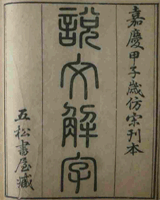 嘉慶甲子歲仿宋刊本
說文解字
五松書屋藏